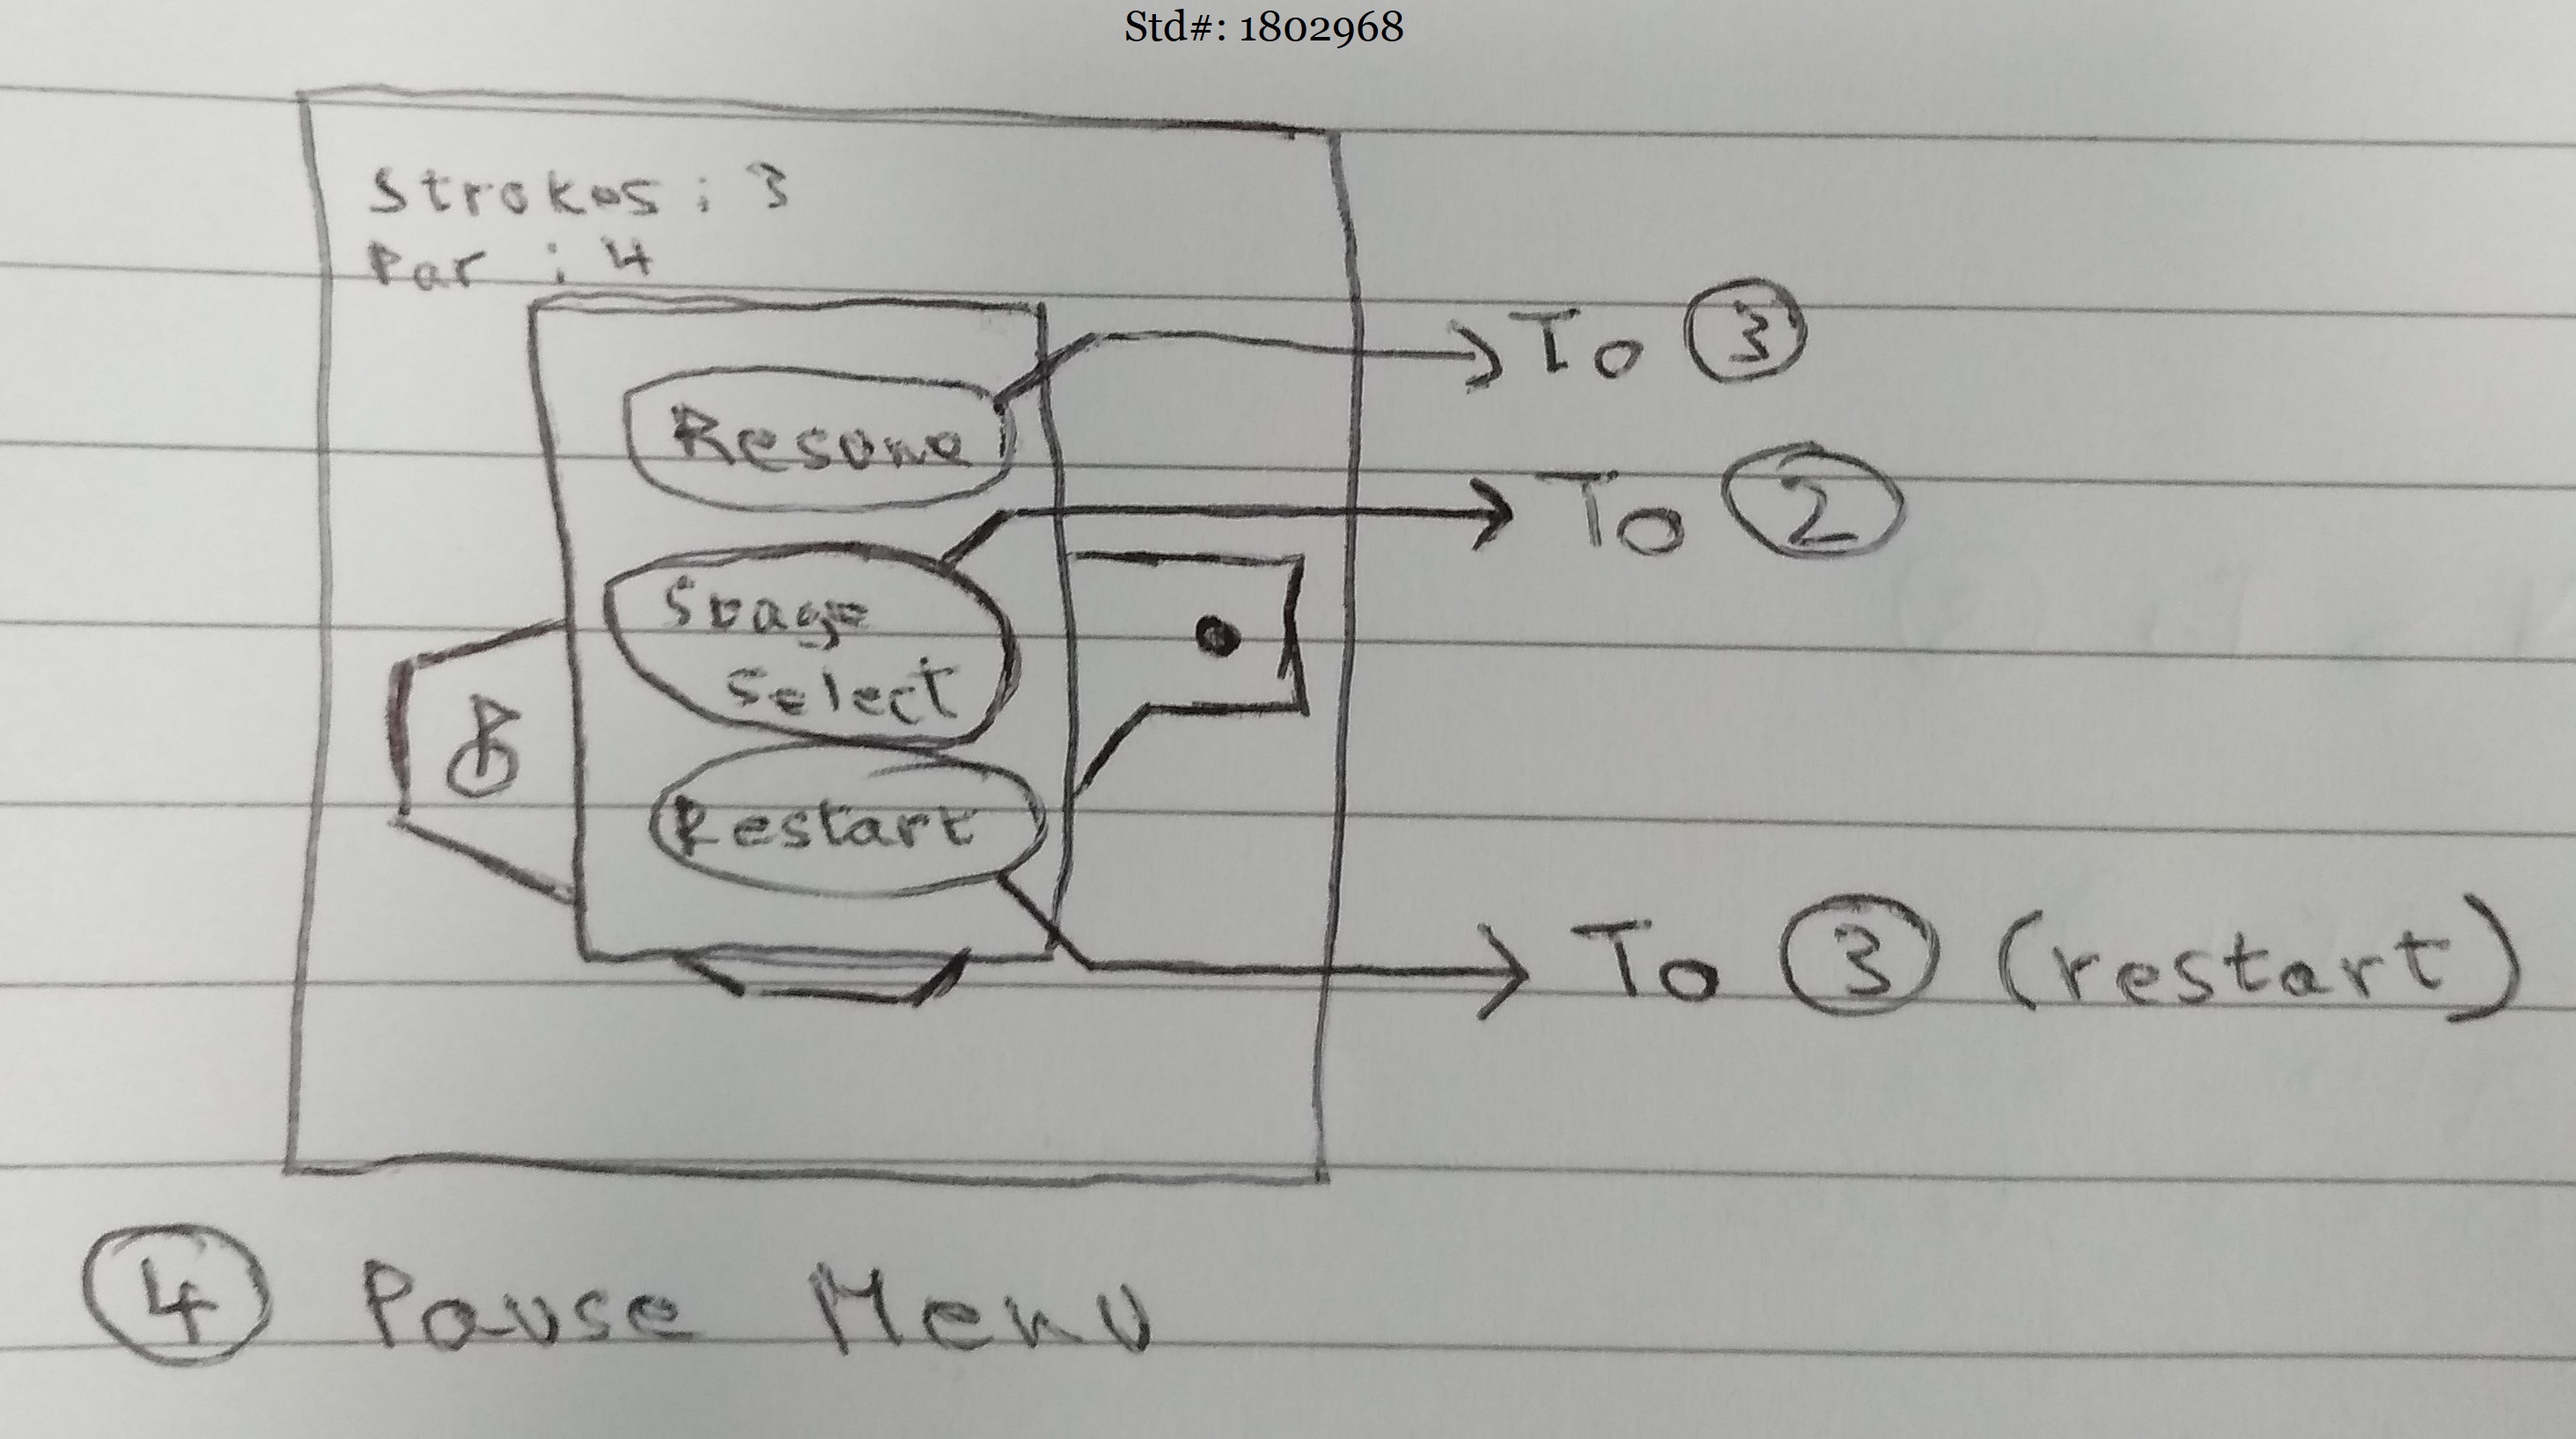 Std#: 1802968
Strokes : 3
Par : 4
Resume
To 3
Stage
Select
To 2
Restart
To 3 (restart)
4 Pause Menu